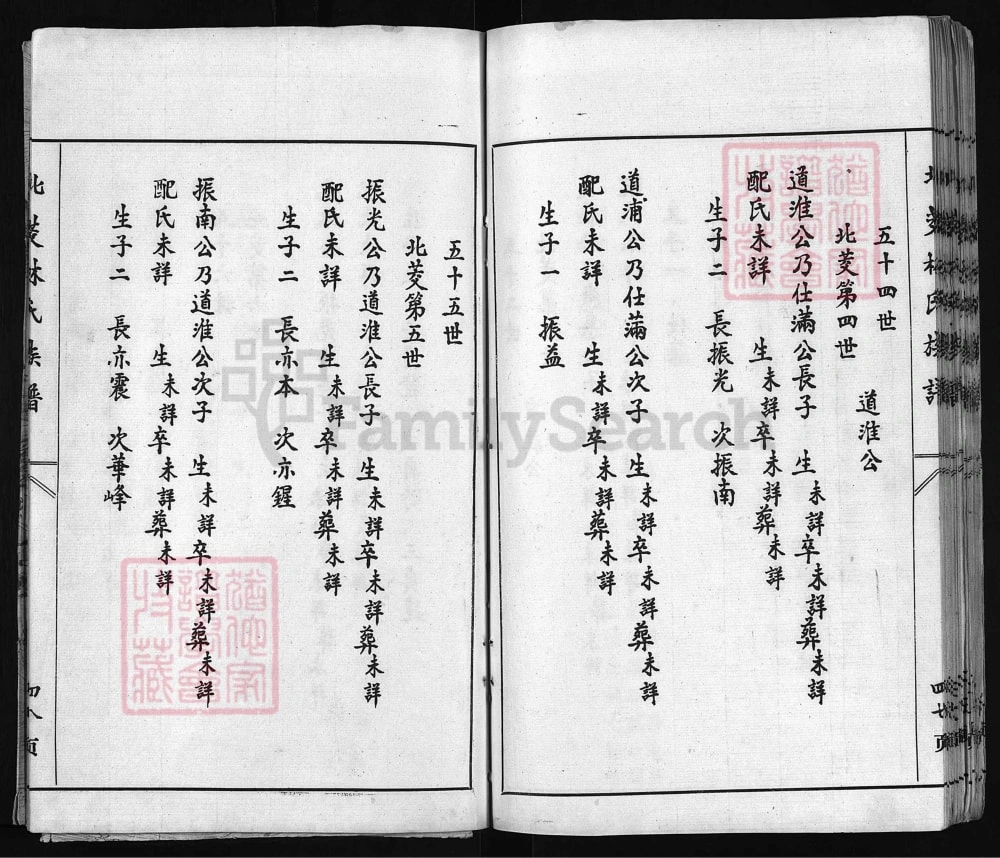 北菱林氏族譜
四七頁
五十四世
北菱第四世
道淮公
道淮公乃仕滿公長子 生未詳卒未詳葬未詳
配氏未詳 生未詳卒未詳葬未詳
生子二 長振光 次振南
道浦公乃仕滿公次子 生未詳卒未詳葬未詳
配氏未詳 生未詳卒未詳葬未詳
生子一 振益
五十五世
北菱第五世
振光公乃道淮公長子 生未詳卒未詳葬未詳
配氏未詳 生未詳卒未詳葬未詳
生子二 長亦本 次亦鋥
振南公乃道淮公次子 生未詳卒未詳葬未詳
配氏未詳 生未詳卒未詳葬未詳
生子二 長亦震 次華峰
北菱林氏族譜
四八頁
FamilySearch